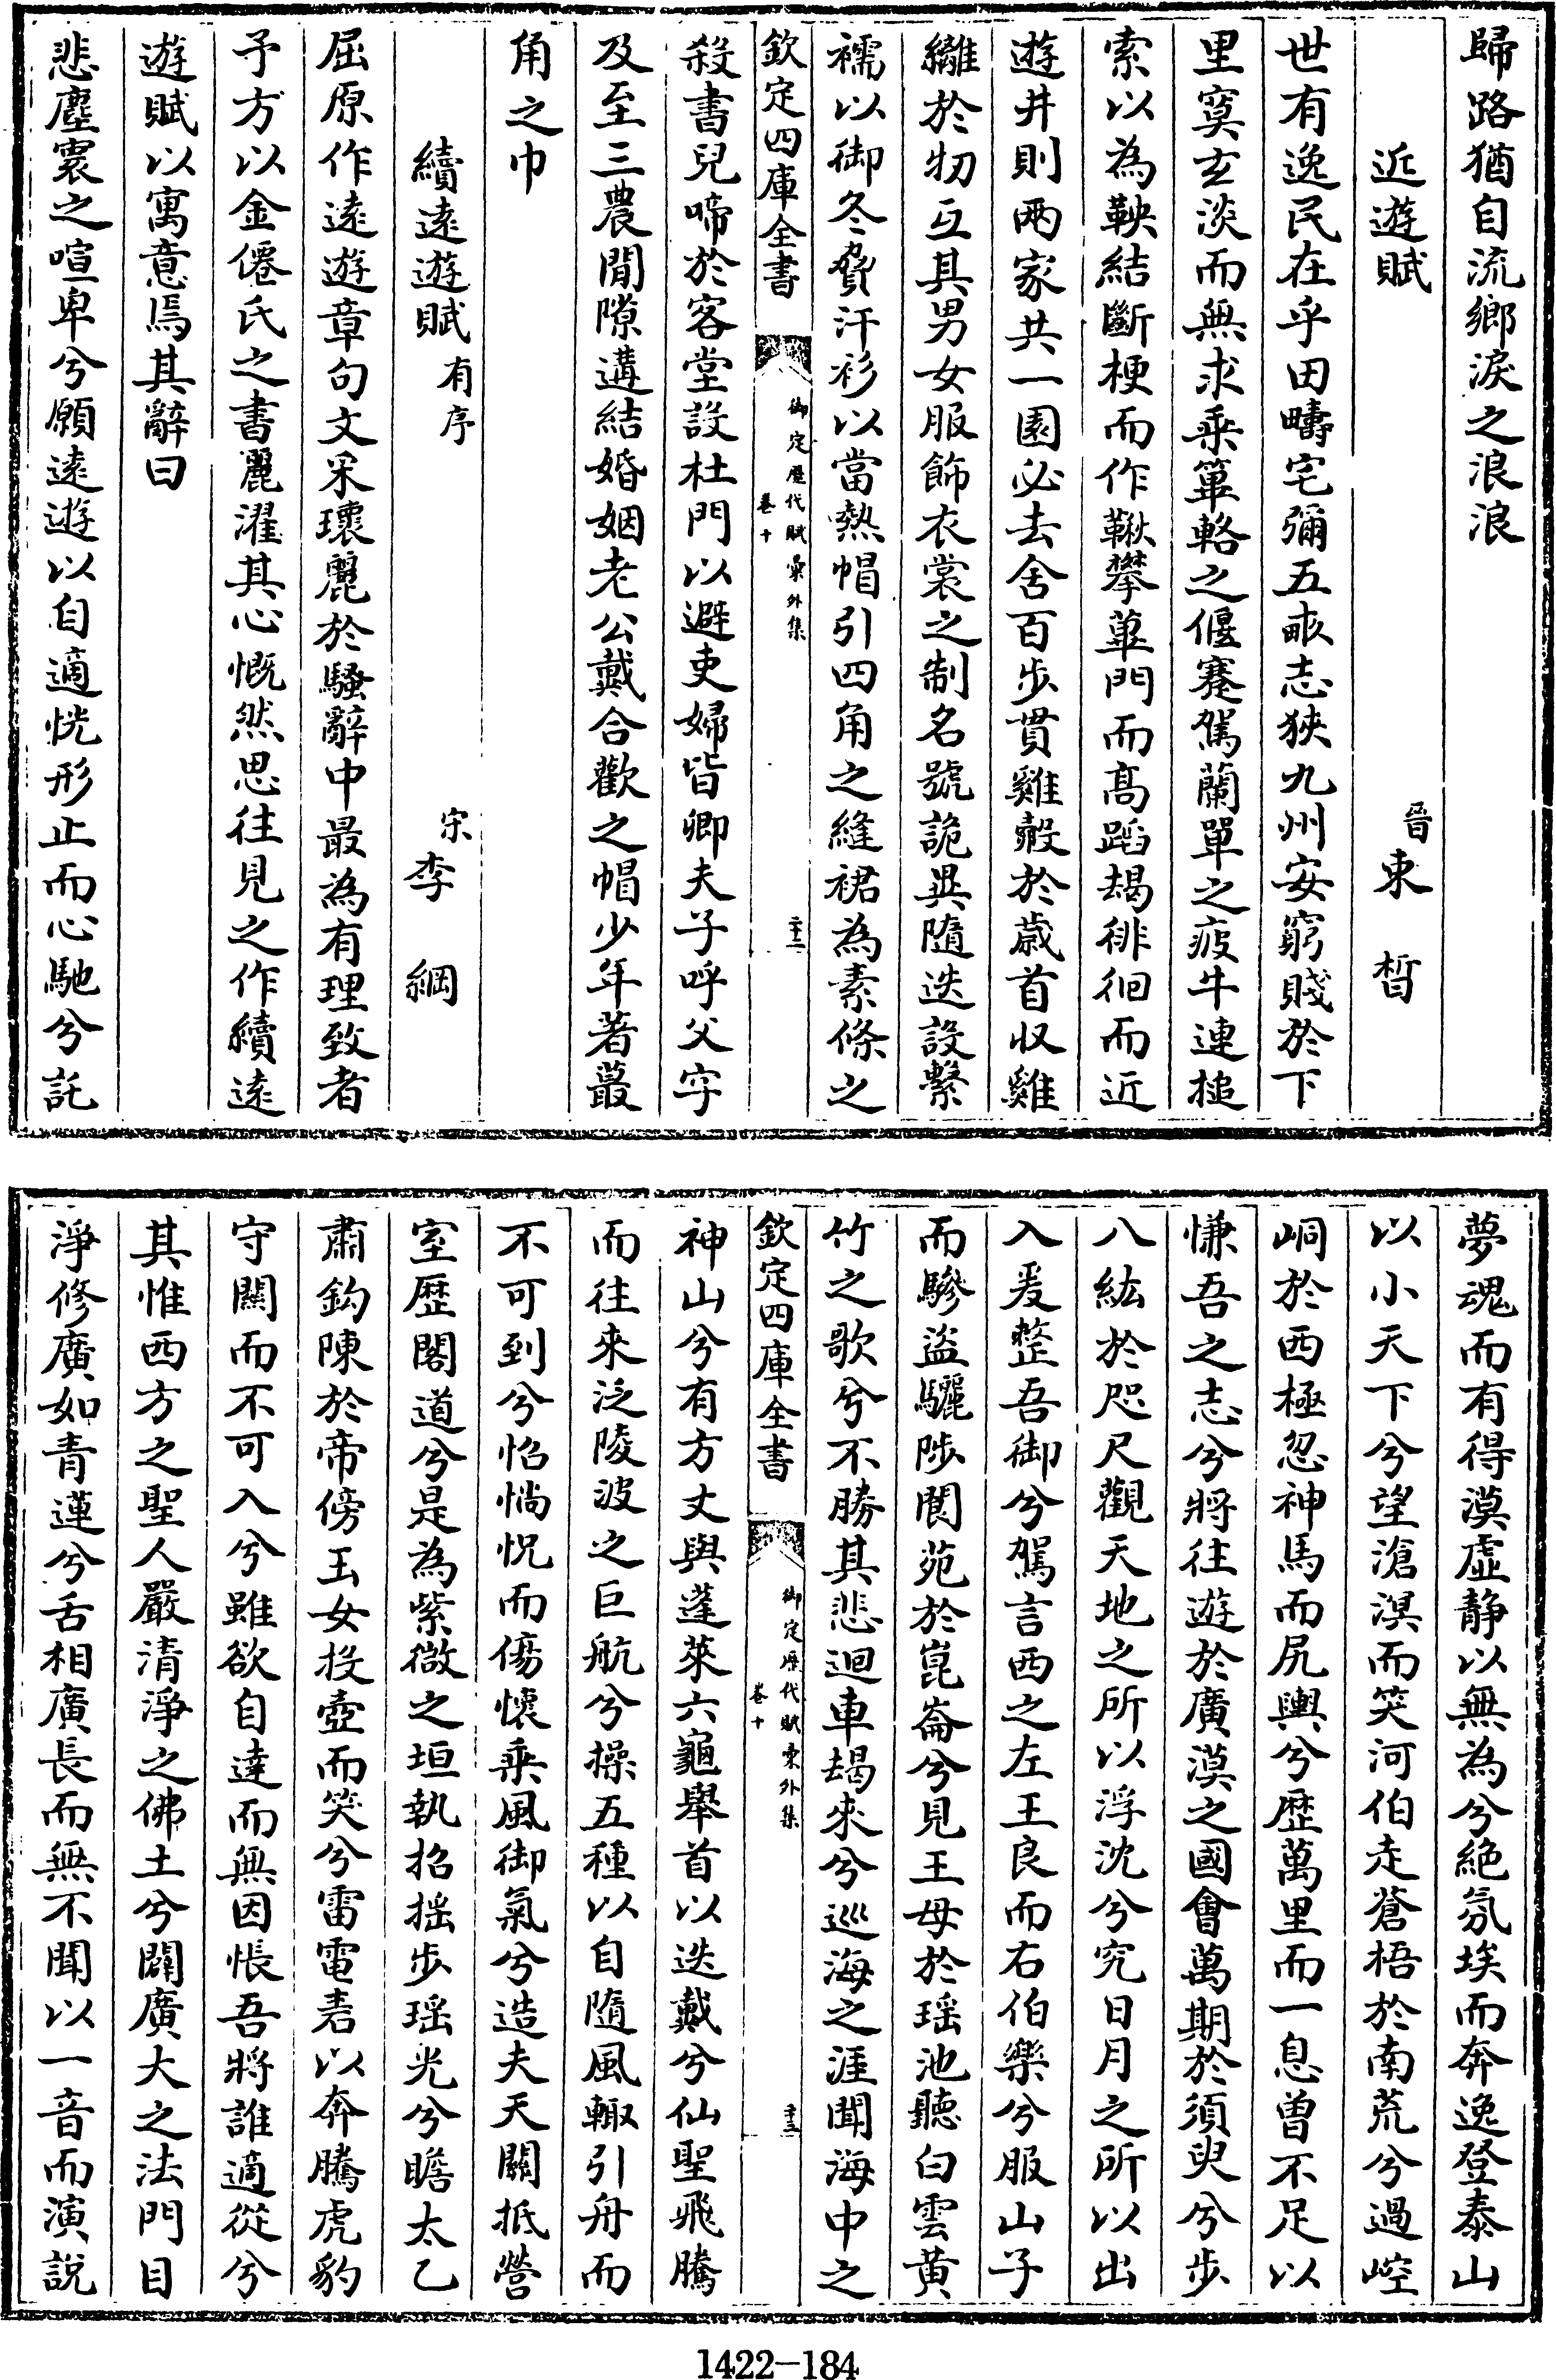 歸路猶自流鄉淚之浪浪
近遊賦
晉束　晳
世有逸民在乎田疇宅彌五畝志狹九州安窮賤於下
里寞玄淡而無求乘篳輅之偃蹇駕蘭單之疲牛連搥
索以為鞅結斷梗而作鞦攀蓽門而高蹈朅徘徊而近
遊井則兩家共一園必去舍百步貫雞㲉於歲首收雞
纚於牣互其男女服飾衣裳之制名號詭異隨迭設繫
襦以御冬脅汗衫以當熱帽引四角之縫裙為素條之
欽定四庫全書
御定歷代賦彙外集
卷十
二十二
殺書兒啼於客堂設杜門以避吏婦皆卿夫子呼父字
及至三農閒隙遘結婚姻老公戴合歡之帽少年著蕞
角之巾
續遠遊賦有序
宋李　綱
屈原作遠遊章句文采瓌麗於騷辭中最為有理致者
予方以金僊氏之書麗濯其心慨然思往見之作續遠
遊賦以寓意焉其辭曰
悲塵寰之喧卑兮願遠遊以自適恍形止而心馳兮託
夢魂而有得漠虛靜以無為兮絶氛埃而奔逸登泰山
以小天下兮望滄溟而笑河伯走蒼梧於南荒兮過崆
峒於西極忽神馬而尻輿兮歷萬里而一息曾不足以
慊吾之志兮將往遊於廣漠之國會萬期於須臾兮步
八紘於咫尺觀天地之所以浮沈兮究日月之所以出
入爰整吾御兮駕言西之左王良而右伯樂兮服山子
而驂盜驪陟閬苑於崑崙兮見王母於瑤池聽白雲黃
竹之歌兮不勝其悲迴車朅來兮巡海之涯聞海中之
欽定四庫全書
御定歷代賦彙外集
卷十
二十三
神山兮有方丈與蓬萊六龜舉首以迭戴兮仙聖飛騰
而往來泛陵波之巨航兮操五種以自隨風輙引舟而
不可到兮怊惝怳而傷懷乘風御氣兮造夫天關抵營
室歷閣道兮是為紫微之垣執招搖步瑤光兮瞻太乙
肅鈎陳於帝傍玉女投壺而笑兮雷電砉以奔騰虎豹
守關而不可入兮雖欲自達而無因悵吾將誰適從兮
其惟西方之聖人嚴清淨之佛土兮闢廣大之法門目
淨修廣如青蓮兮舌相廣長而無不聞以一音而演說
1422—184